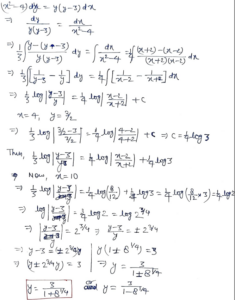 (x²-4)dy = y(y-3)dx
⇒ dy/y(y-3) = dx/x²-4
⇒ 1/3 ∫ y-(y-3)/y(y-3) dy = ∫ dx/x²-4 = 1/4 ∫ (x+2)-(x-2)/(x+2)(x-2) dx
⇒ 1/3 ∫ [1/y-3 - 1/y] dy = 1/4 ∫ [1/x-2 - 1/x+2] dx
⇒ 1/3 log |y-3/y| = 1/4 log |x-2/x+2| + c
x=4, y=3/2
⇒ 1/3 log |3/2-3 / 3/2| = 1/4 log |4-2/4+2| + c ⇒ c = 1/4 log 3
Then, 1/3 log |y-3/y| = 1/4 log |x-2/x+2| + 1/4 log 3
⇒ Now, x=10
⇒ 1/3 log |y-3/y| = 1/4 log (8/12) + 1/4 log 3 = 1/4 log (8/12 × 3) = 1/4 log 2
⇒ log |y-3/y| = 3/4 log 2 = log 2^3/4
⇒ |y-3/y| = 2^3/4 ⇒ y-3/y = ± 2^3/4
⇒ y-3 = ± 2^3/4 y | y(1 ± 8^1/4) = 3
⇒ (y ± 2^3/4 y) = 3 | ⇒ y = 3/1±8^1/4
y = 3/1+8^1/4 or y = 3/1-8^1/4